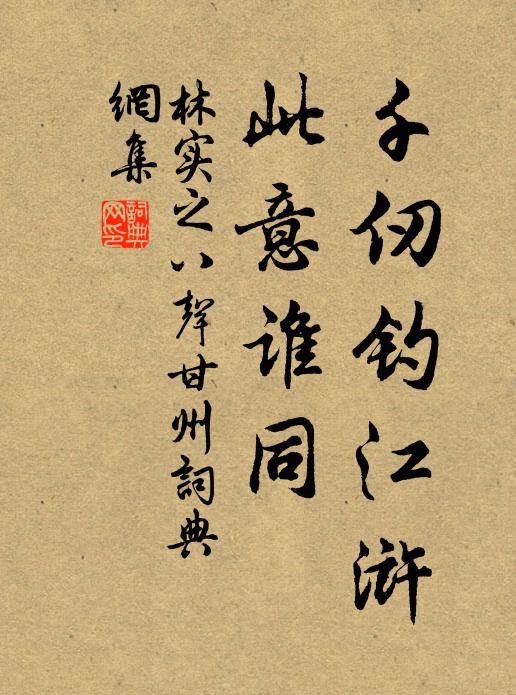 千仞钓江浒
此意谁同
林实之八声甘州詞典
網集
詞典
网印